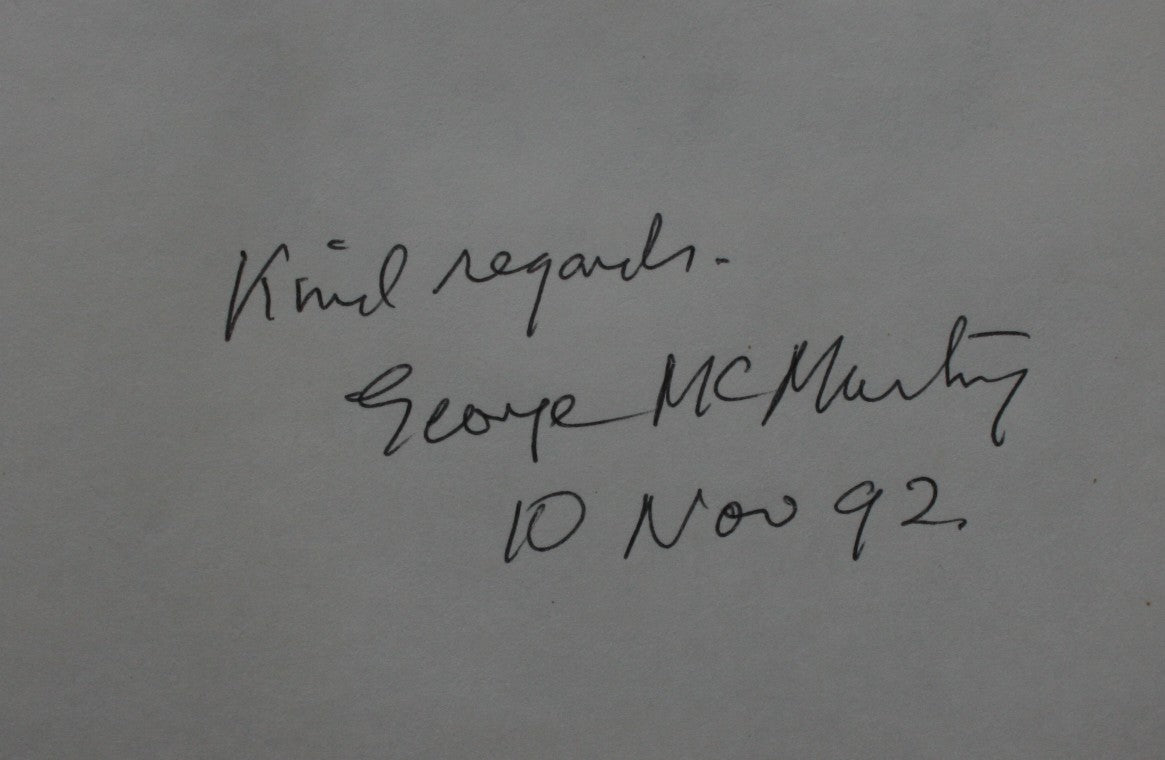 Kind regards.
George McMurtry
10 Nov 92.